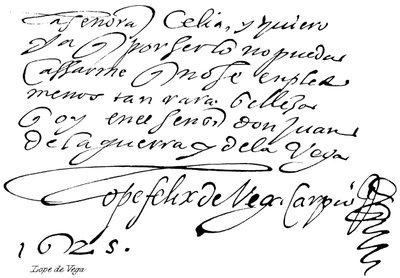 La señora Celia, y quiero
ya q por serlo no pueda
Cassarme q no se enplee
menos tan rara belleza
en el Señor don Juan
de la guerra y de la Vega
Lope felix de Vega Carpio
1625.
Lope de Vega